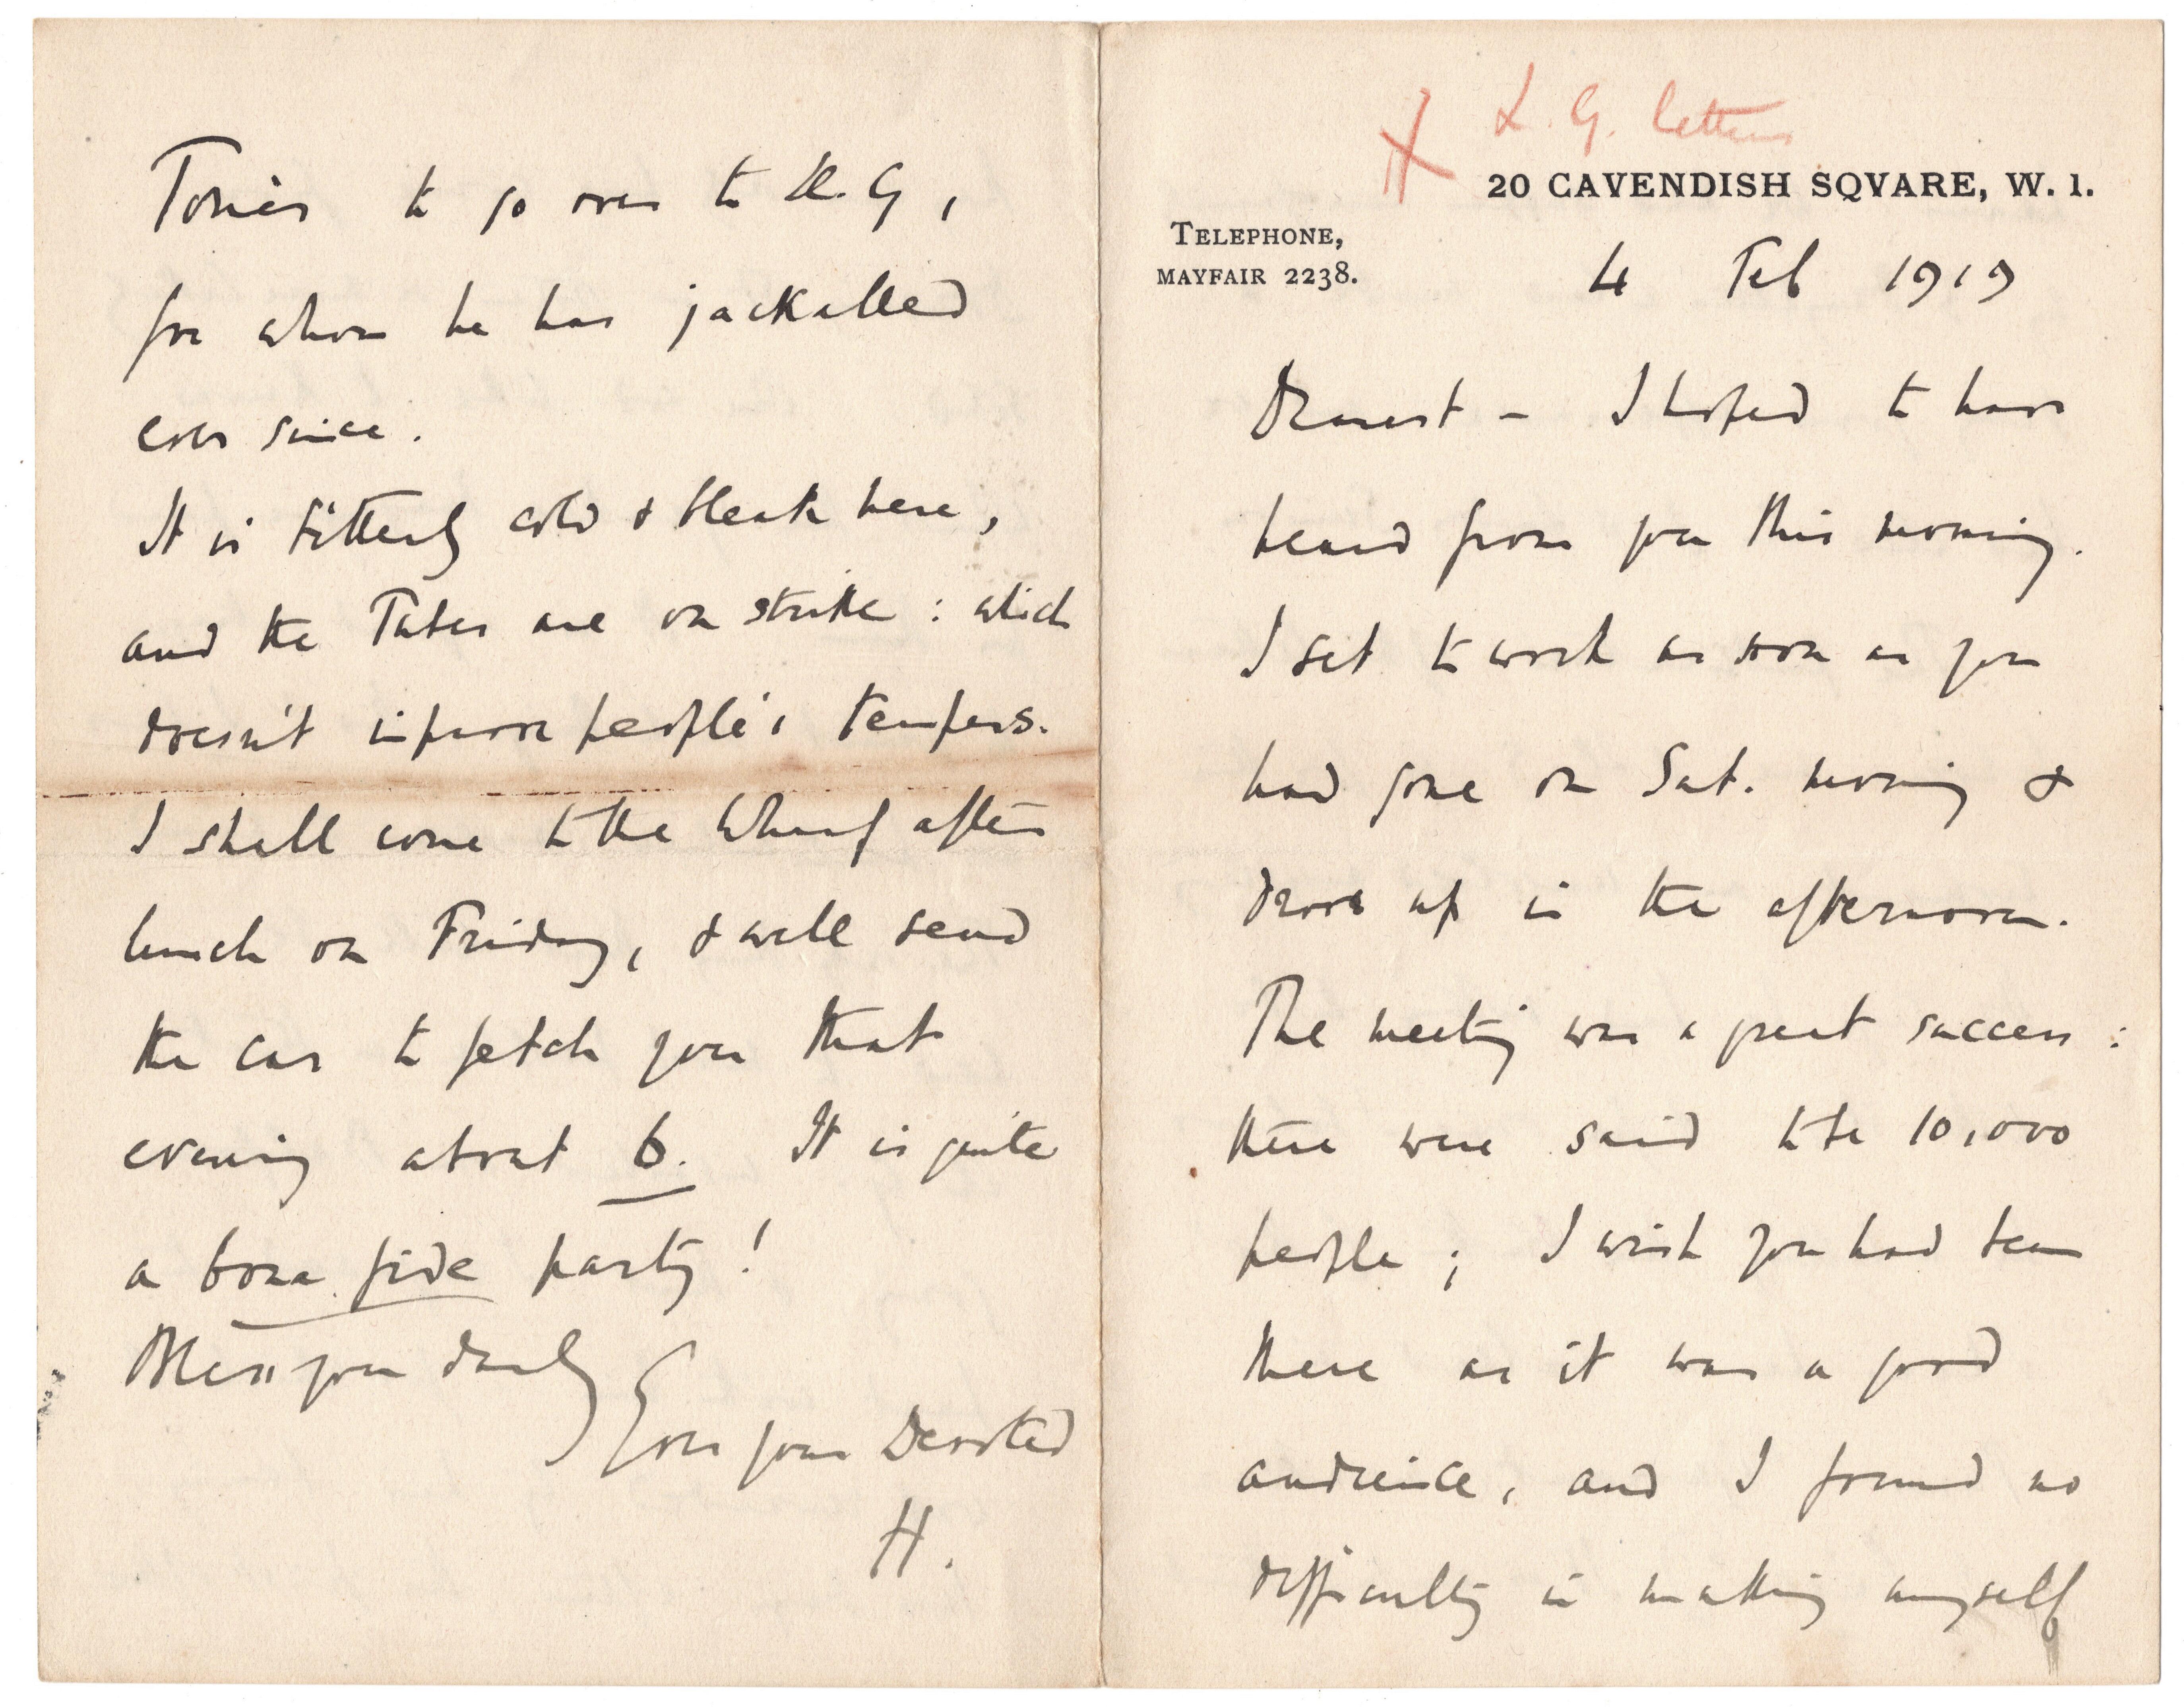 X L. G. letters
20 CAVENDISH SQVARE, W. 1.
TELEPHONE,
MAYFAIR 2238.
4 Feb 1919
Dearest – I hoped to have
heard from you this morning.
I set to work as soon as you
had gone on Sat. morning &
drove up in the afternoon.
The meeting was a great success :
there were said to be 10,000
people ; I wish you had been
there as it was a good
audience, and I found no
difficulty in making myself
Tories to go over to Ll. G,
for whom he has jackalled
ever since.
It is bitterly cold & bleak here,
and the Tubes are on strike : which
doesn't improve people's tempers.
I shall come to the Wharf after
lunch on Friday, & will send
the car to fetch you that
evening about 6. It is quite
a bona fide party !
Bless you dearly
Ever your Devoted
H.